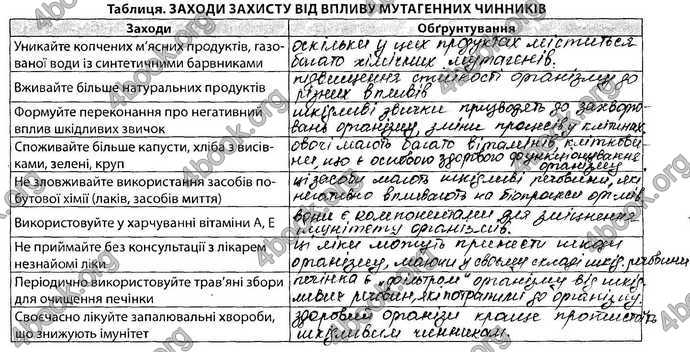 Таблиця. ЗАХОДИ ЗАХИСТУ ВІД ВПЛИВУ МУТАГЕННИХ ЧИННИКІВ
Заходи
Обґрунтування
Уникайте копчених м'ясних продуктів, газо-
ваної води із синтетичними барвниками
оскільки у цих продуктах міститься
багато хімічних мутагенів.
Вживайте більше натуральних продуктів
підвищення стійкості організму до
різних впливів
Формуйте переконання про негативний
вплив шкідливих звичок
шкідливі звички призводять до захворю-
вань організму, зміни процесів у клітинах
Споживайте більше капусти, хліба з висів-
ками, зелені, круп
овочі мають багато вітамінів, кліткови-
ни, що є основою здорового функціонування
організму
Не зловживайте використання засобів по-
бутової хімії (лаків, засобів миття)
ці засоби мають шкідливі речовини, які
негативно впливають на біопроцеси
Використовуйте у харчуванні вітаміни А, Е
вони є компонентами для зміцнення
імунітету організмів.
Не приймайте без консультації з лікарем
незнайомі ліки
ці ліки можуть принести шкоди
організму, маючи у своєму складі шкід. речовини
Періодично використовуйте трав'яні збори
для очищення печінки
печінка є „фільтром" організму від шкід-
ливих речовин, які потрапили до організму.
Своєчасно лікуйте запалювальні хвороби,
що знижують імунітет
здоровий організм краще протистоїть
шкідливим чинникам.
4book.org